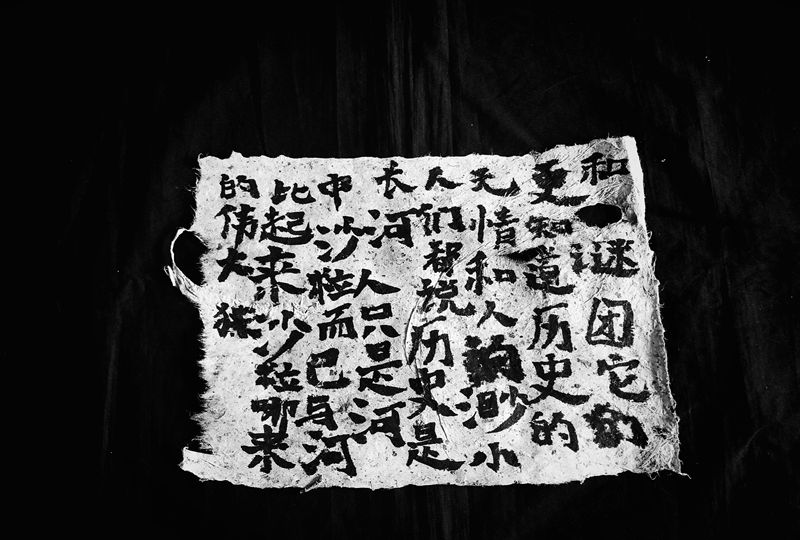 和谜团它的
更知道历史的
无情和人渺小
人们都说历史是
长河人只是河
中沙粒而已与河
比起来沙粒哪来
的伟大